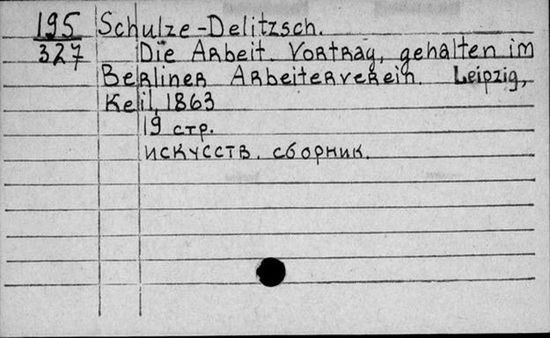 195 Schulze-Delitzsch.
327 Die Arbeit. Vortrag, gehalten im
Berliner Arbeiterverein. Leipzig,
Keil, 1863
19 стр.
искусств. сборник.